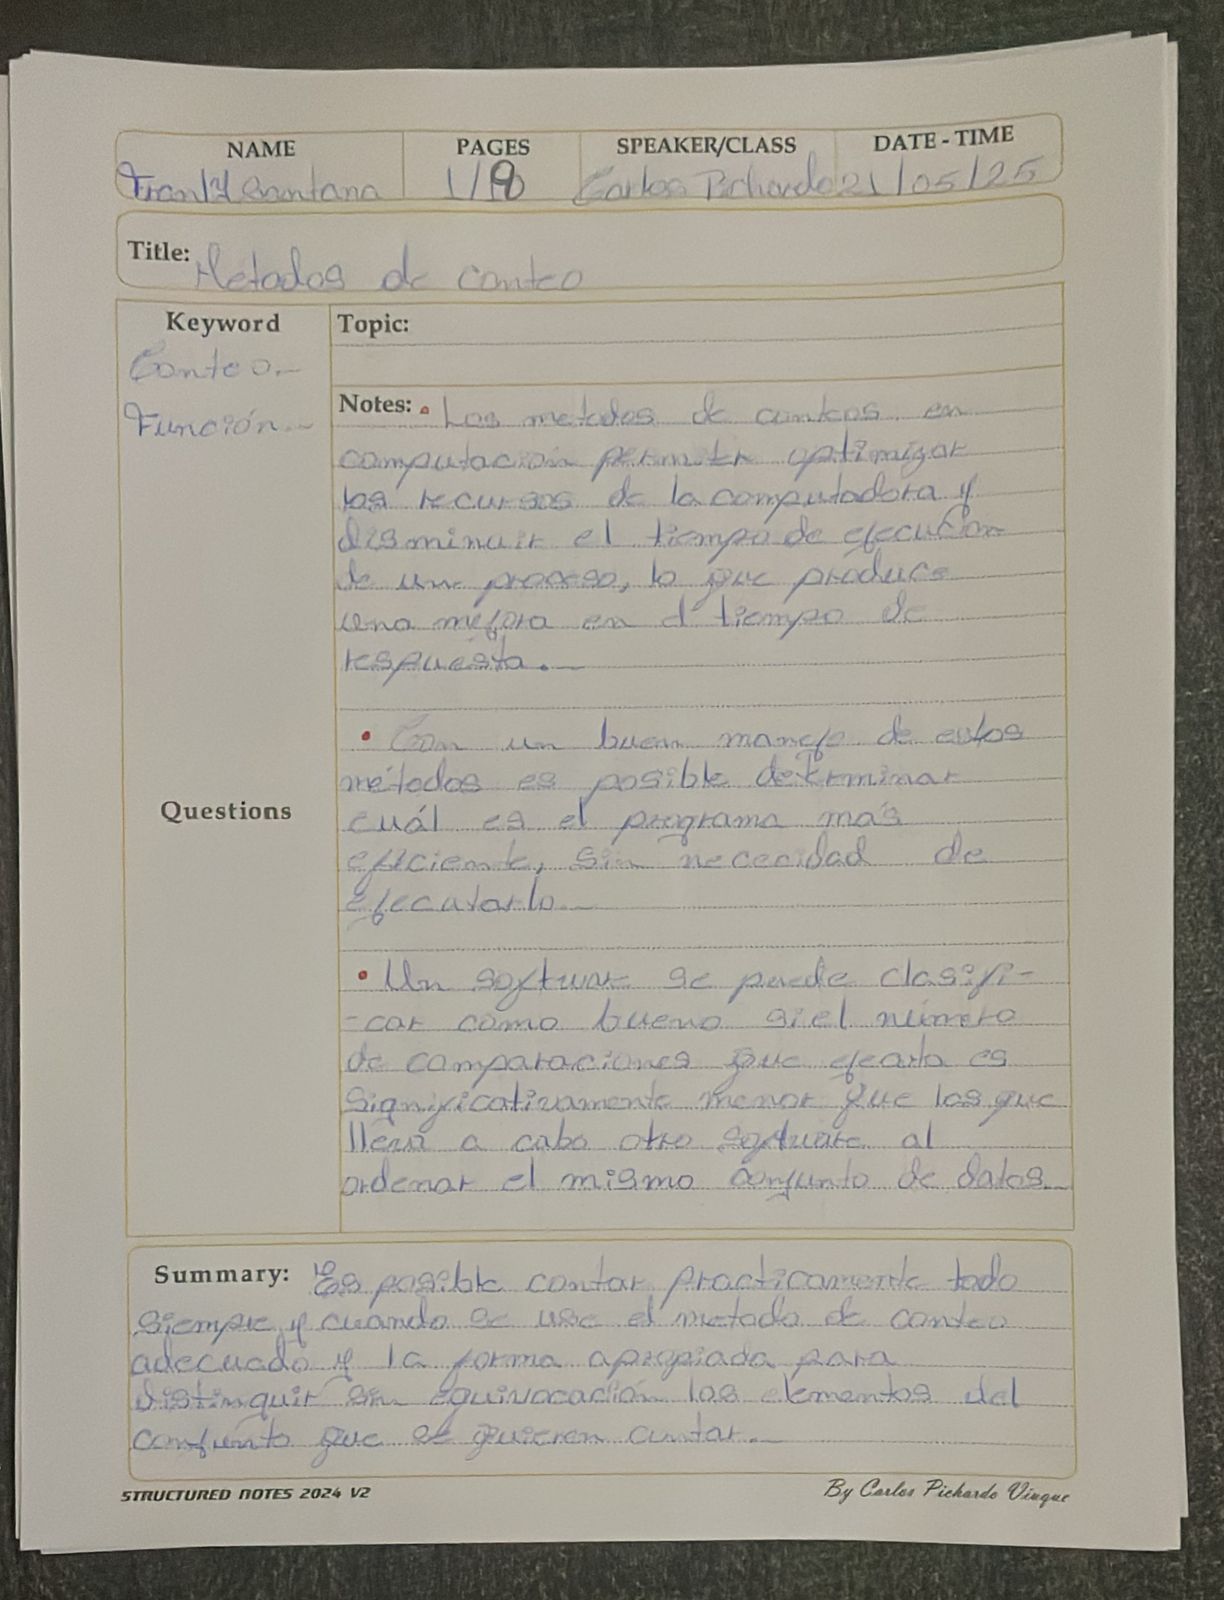 NAME PAGES SPEAKER/CLASS DATE - TIME
Frankly Santana 1/18 Carlos Pichardo 21/05/25
Title: Metodos de conteo
Keyword
Conteo.-
Función.-
Questions
Topic:
Notes: • Los metodos de conteos en
computación permiter optimizar
los recursos de la computadora y
disminuir el tiempo de ejecución
de un proceso, lo que produce
una mejora en el tiempo de
respuesta.-
• Con un buen manejo de estos
métodos es posible determinar
cuál es el programa más
eficiente, sin nececidad de
ejecutarlo.-
• Un software se puede clasifi-
-car como bueno si el número
de comparaciones que ejecuta es
significativamente menor que las que
lleva a cabo otro software al
ordenar el mismo conjunto de datos.-
Summary: Es posible contar practicamente todo
siempre y cuando se use el metodo de conteo
adecuado y la forma apropiada para
distinguir sin equivocación los elementos del
conjunto que se quieren contar.-
STRUCTURED NOTES 2024 V2 By Carlos Pichardo Viuque